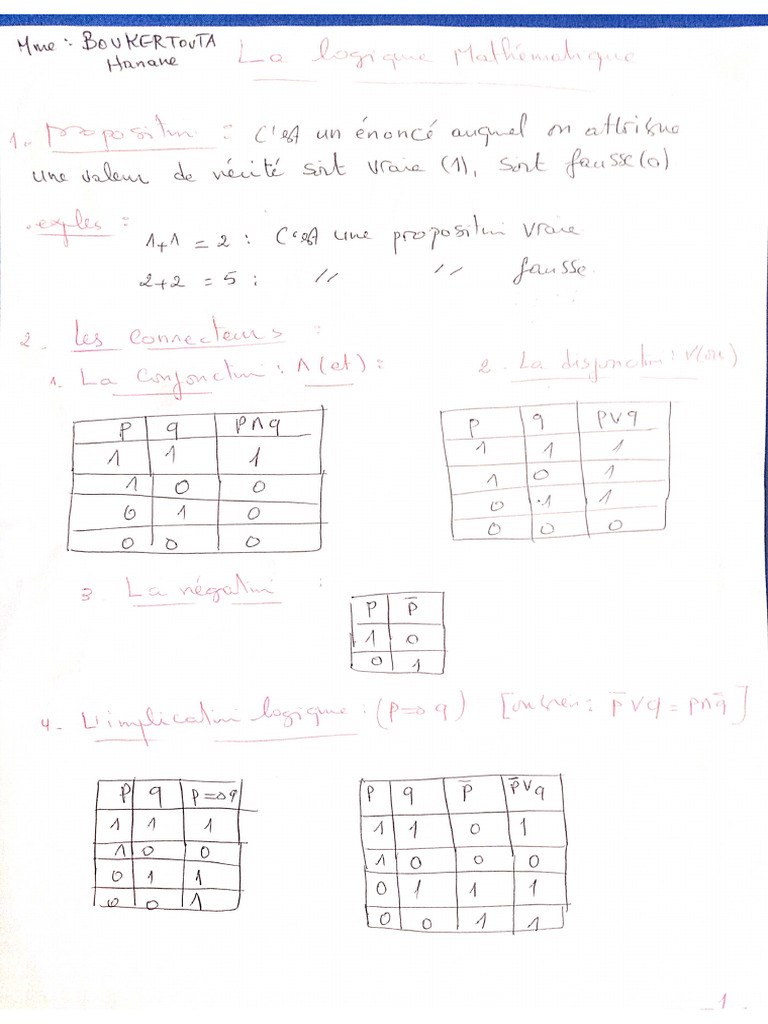 Mme : BOUKERTOUTA
Hanane
La logique Mathématique
1. proposition : C'est un énoncé auquel on attribue
une valeur de vérité soit vraie (1), soit fausse (0)
.exples :
1+1 = 2 : C'est une proposition vraie
2+2 = 5 : // // fausse.
2. Les connecteurs :
1. La conjonction : ∧ (et) :
p q p∧q
1 1 1
1 0 0
0 1 0
0 0 0
2. La disjonction : ∨(ou)
p q p∨q
1 1 1
1 0 1
0 1 1
0 0 0
3. La négation :
p p̅
1 0
0 1
4. L'implication logique : (p⇒q) [ : p̅∨q = p∧q̅]
p q p⇒q
1 1 1
1 0 0
0 1 1
0 0 1
p q p̅ p̅∨q
1 1 0 1
1 0 0 0
0 1 1 1
0 0 1 1
1